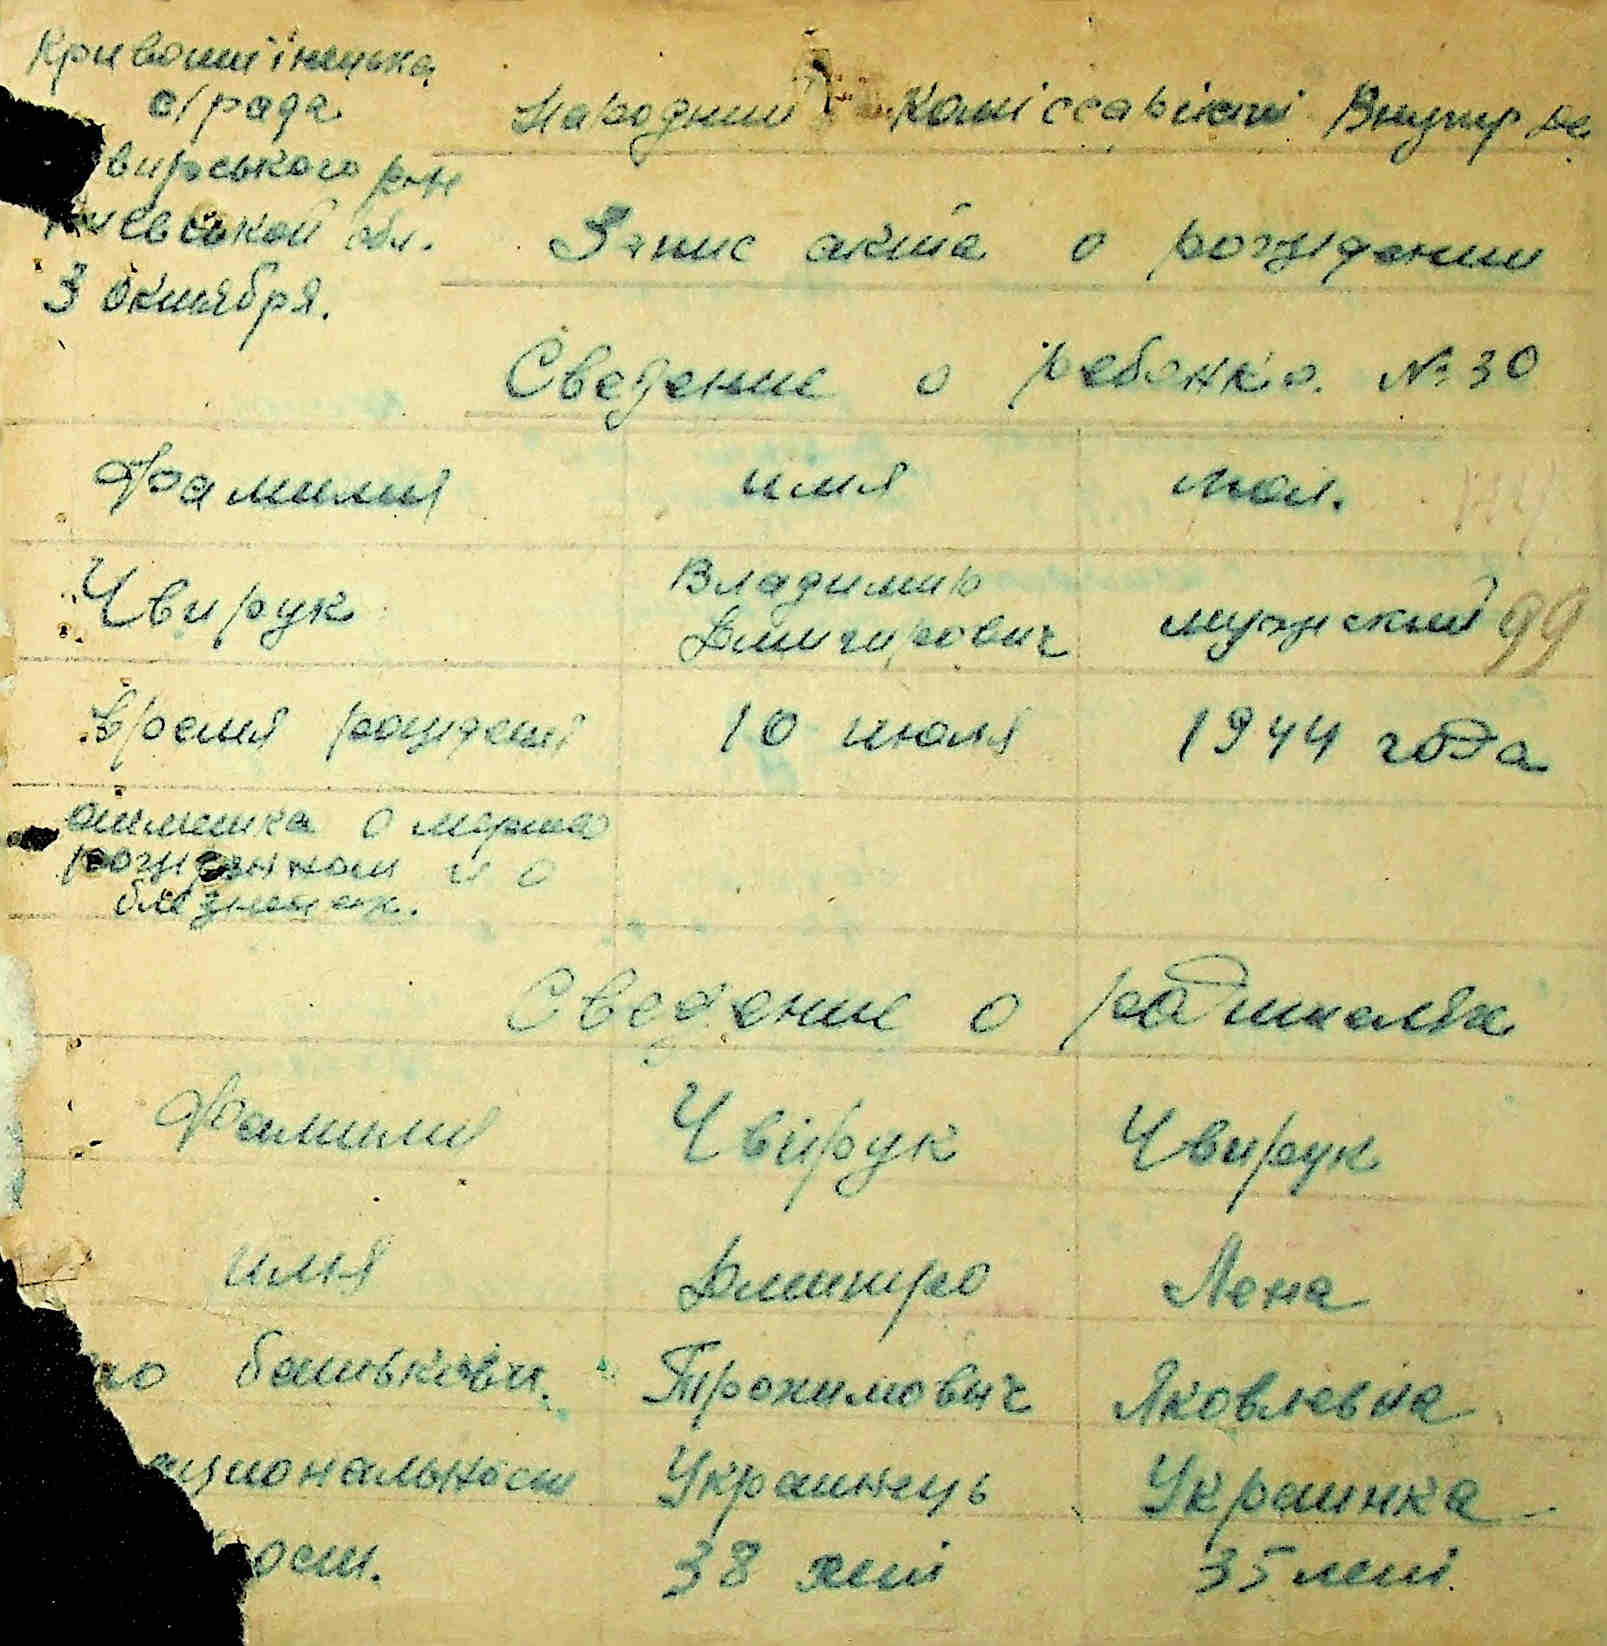 Кривошиїнецька
с/рада
вирського р-н
Киевской обл.
3 октября.
Народний Коміссаріят Внутр де
Запис акта о рождении
Сведение о ребенке. № 30
Фамилия имя пол.
Чвирук Владимир Дмитирович мужский 99
время рождені 10 июля 1944 года
отметка о мертво
рожденном и о
близнетах.
Сведение о родителях
Фамилия Чвірук Чвирук
имя Дмитро Лена
по батькови. Трохимович Яковлевна
ациональност Украинець Украинка
ост. 38 лет 35 лет